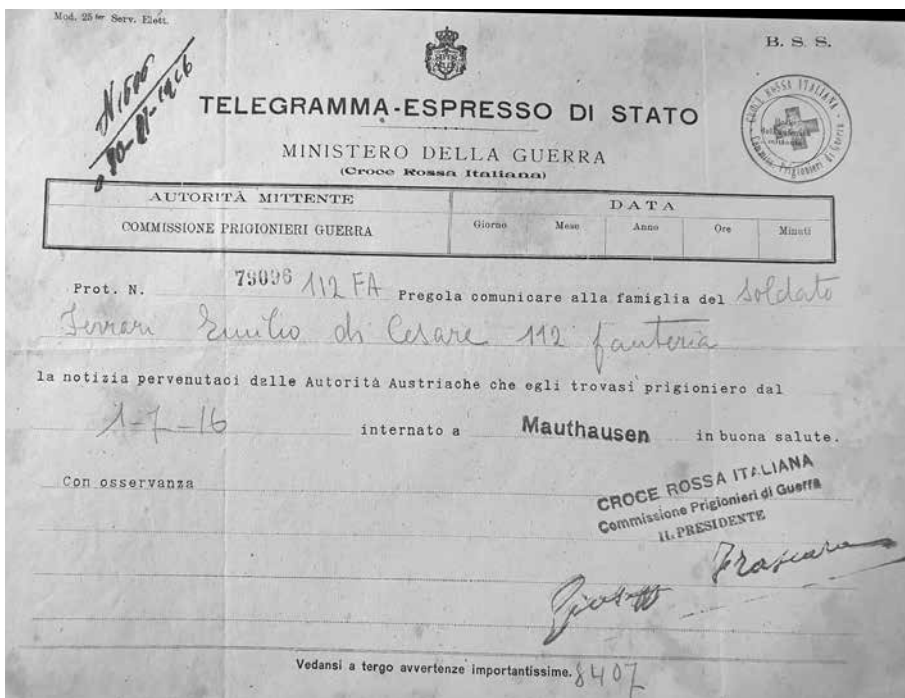 Mod. 25 ter Serv. Elett.
B. S. S.
N 1606
TELEGRAMMA-ESPRESSO DI STATO
MINISTERO DELLA GUERRA
(Croce Rossa Italiana)
CROCE ROSSA ITALIANA
Commis. Prigionieri di Guerra
AUTORITÀ MITTENTE
DATA
COMMISSIONE PRIGIONIERI GUERRA
Giorno Mese Anno Ore Minuti
Prot. N. 79096 112 FA Pregola comunicare alla famiglia del Soldato
Ferrari Emilio di Cesare 112 fanteria
la notizia pervenutaci dalle Autorità Austriache che egli trovasi prigioniero dal
1-7-16 internato a Mauthausen in buona salute.
Con osservanza
CROCE ROSSA ITALIANA
Commissione Prigionieri di Guerra
IL PRESIDENTE
Frascara
Vedansi a tergo avvertenze importantissime. 8407